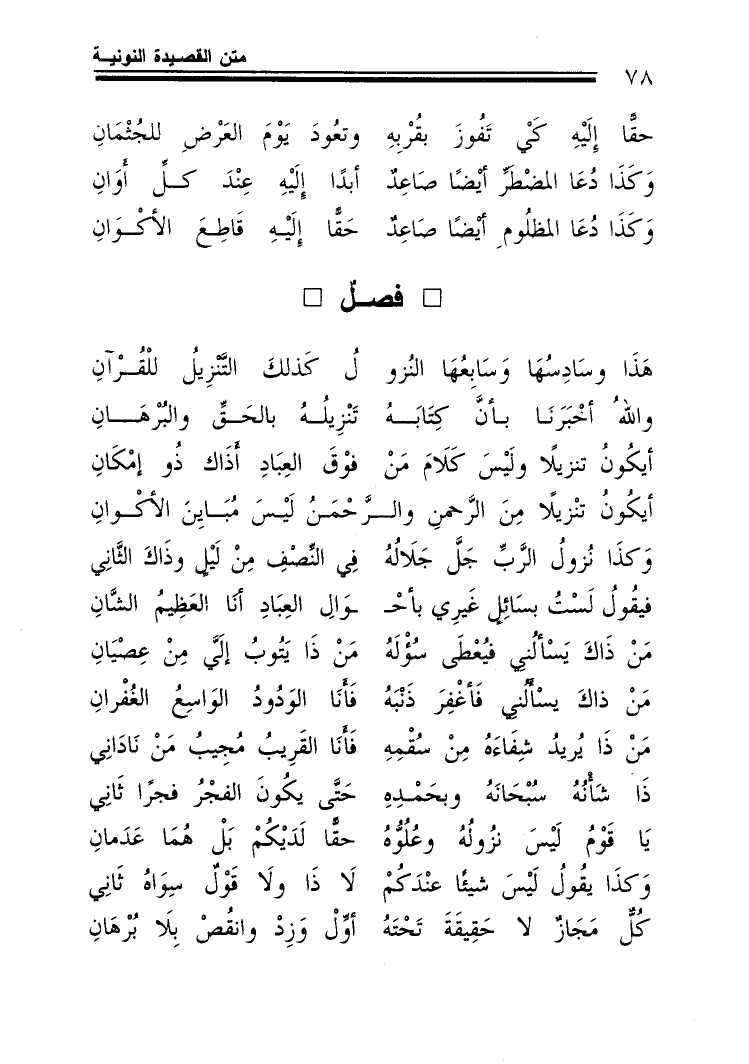 متن القصيدة النونية
٧٨
حقًّا إِلَيْهِ كَيْ تَفُوزَ بقُرْبِهِ وتعُودَ يَوْمَ العَرْضِ للجُثْمَانِ
وَكَذَا دُعَا المضْطَرِّ أيْضًا صَاعِدٌ أبدًا إِلَيْهِ عِنْدَ كـلِّ أَوَانِ
وَكَذَا دُعَا المظلُومِ أيْضًا صَاعِدٌ حَقًّا إِلَيْـهِ قَاطِعَ الأكْـوَانِ
□ فصـلٌ □
هَذَا وسَادِسُهَا وَسَابِعُهَا النُزو لُ كَذلكَ التَّنْزِيلُ للْقُـرْآنِ
واللهُ أخْبَرَنَـا بـأنَّ كِتَابَـهُ تَنْزِيلُـهُ بالحَـقِّ والبُرْهَـانِ
أيكُونُ تنزيلًا ولَيْسَ كَلَامَ مَنْ فوْقَ العِبَادِ أَذَاكَ ذُو إمْكَانِ
أيكُونُ تنْزِيلًا مِنَ الرَّحمنِ والـرَّحْمَـنُ لَيْـسَ مُبَـاينَ الأكْـوانِ
وَكَذَا نُزولُ الرَّبِّ جَلَّ جَلَالُهُ فِي النِّصْفِ مِنْ لَيْلٍ وذَاكَ الثَّانِي
فيقُولُ لَسْتُ بسَائِلٍ غَيرِي بأحْـ ـوَالِ العِبَادِ أنَا العَظِيمُ الشَّانِ
مَنْ ذَاكَ يَسْألُنِي فيُعْطَى سُؤْلَهُ مَنْ ذَا يَتُوبُ إلَيَّ مِنْ عِصْيَانِ
مَنْ ذاكَ يسْألُنِي فَأغْفِرَ ذَنْبَهُ فَأَنَا الوَدُودُ الوَاسِعُ الغُفْرانِ
مَنْ ذَا يُرِيدُ شِفَاءَهُ مِنْ سُقْمِهِ فَأنَا القَرِيبُ مُجِيبُ مَنْ نَادَانِي
ذَا شَأْنُهُ سُبْحَانَهُ وبحَمْـدِهِ حَتَّى يكُونَ الفجْرُ فجرًا ثَانِي
يَا قَوْمُ لَيْسَ نزُولُهُ وعُلُوُّهُ حقًّا لَدَيْكُمْ بَلْ هُمَا عَدَمانِ
وَكَذا يقُولُ لَيْسَ شيئًا عندَكُمْ لَا ذَا ولَا قَوْلٌ سِوَاهُ ثَانِي
كُلٌّ مَجَازٌ لا حَقِيقَةَ تَحْتَهُ أوِّلْ وَزِدْ وانقُصْ بِلَا بُرْهَانِ